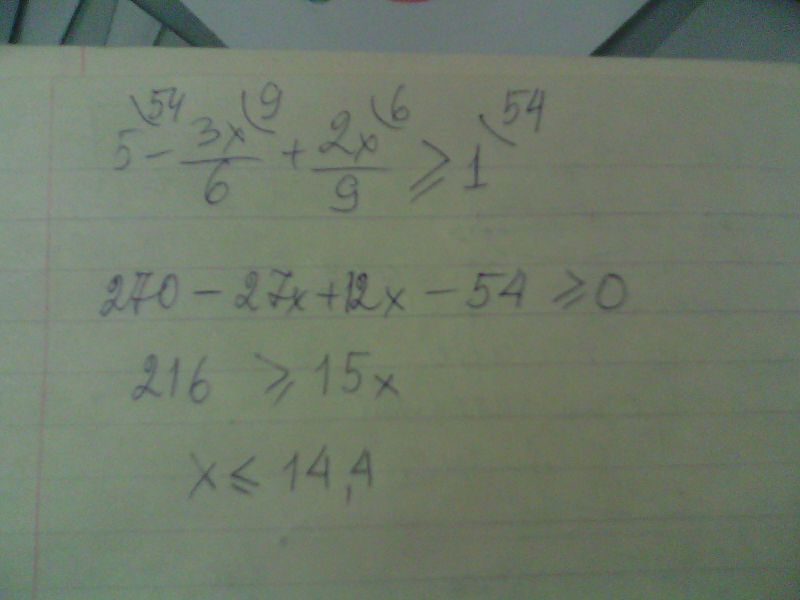 5\54 − 3x\9/6 + 2x\6/9 ⩾ 1\54
270 − 27x + 12x − 54 ⩾ 0
216 ⩾ 15x
x ⩽ 14,4